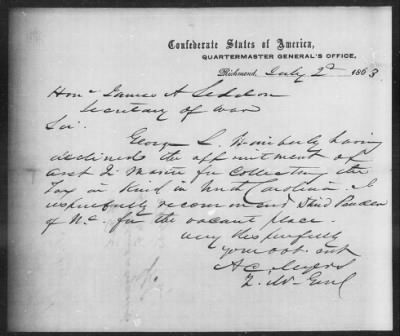 Confederate States of America,
QUARTERMASTER GENERAL'S OFFICE,
Richmond, July 2d 1863
Honl James A Seddon
Secretary of War
Sir.
George L. Wimberly having
declined the appointment of
Asst Qr Master for Collecting the
Tax in Kind in North Carolina. I
respectfully recommend David Pender
of N.C. for the vacant place.
Very Respectfully
Your obt. svt
A C. Myers
Q. Mr Genl